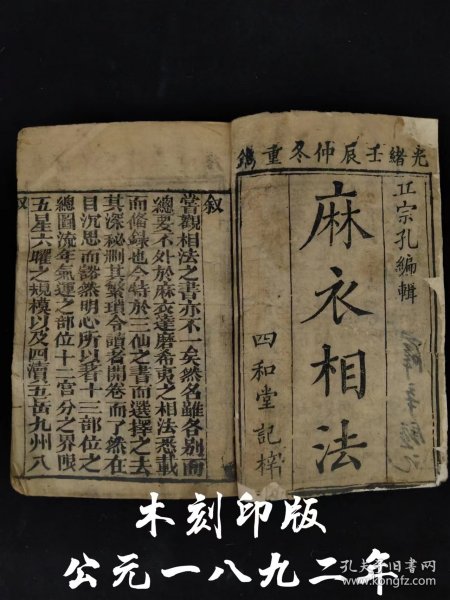 光緒壬辰仲冬重鐫
正宗孔編輯
麻衣相法
四和堂記梓
叙
嘗觀相法之書亦不一矣然名雖各别而
總要不外於麻衣達磨希夷之相法悉載
而俻録也今特於三仙之書而選擇之去
其深秘刪其繁瑣令讀者開卷而了然在
目沉思而豁然明心所以著十三部位之
總圖流年氣運之部位十二宫分之界限
五星六曜之規模以及四瀆五岳九州八
叙
木刻印版
公元一八九二年
孔夫子旧书网